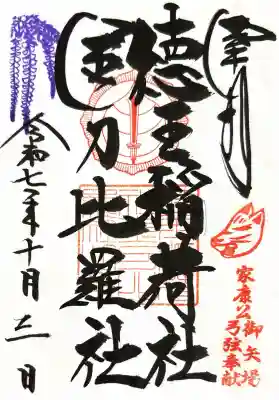 奉拝
徳王稲荷社
金刀比羅社
令和七年十月 日
家康公御矢場
弓弦奉献